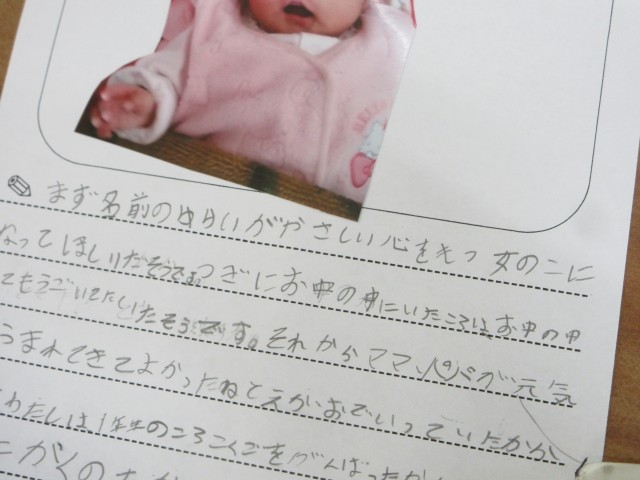 まず名前のゆらいがやさしい心をもつ女のこに
なってほしいだそうです。つぎにお中の中にいたころは、お中の中
てもうごいてたしいたそうです。それからママ、パパが元気
うまれてきてよかったねとえがおでいっていたかか
わたしは1年生のころこくごをがんばったか
がくの